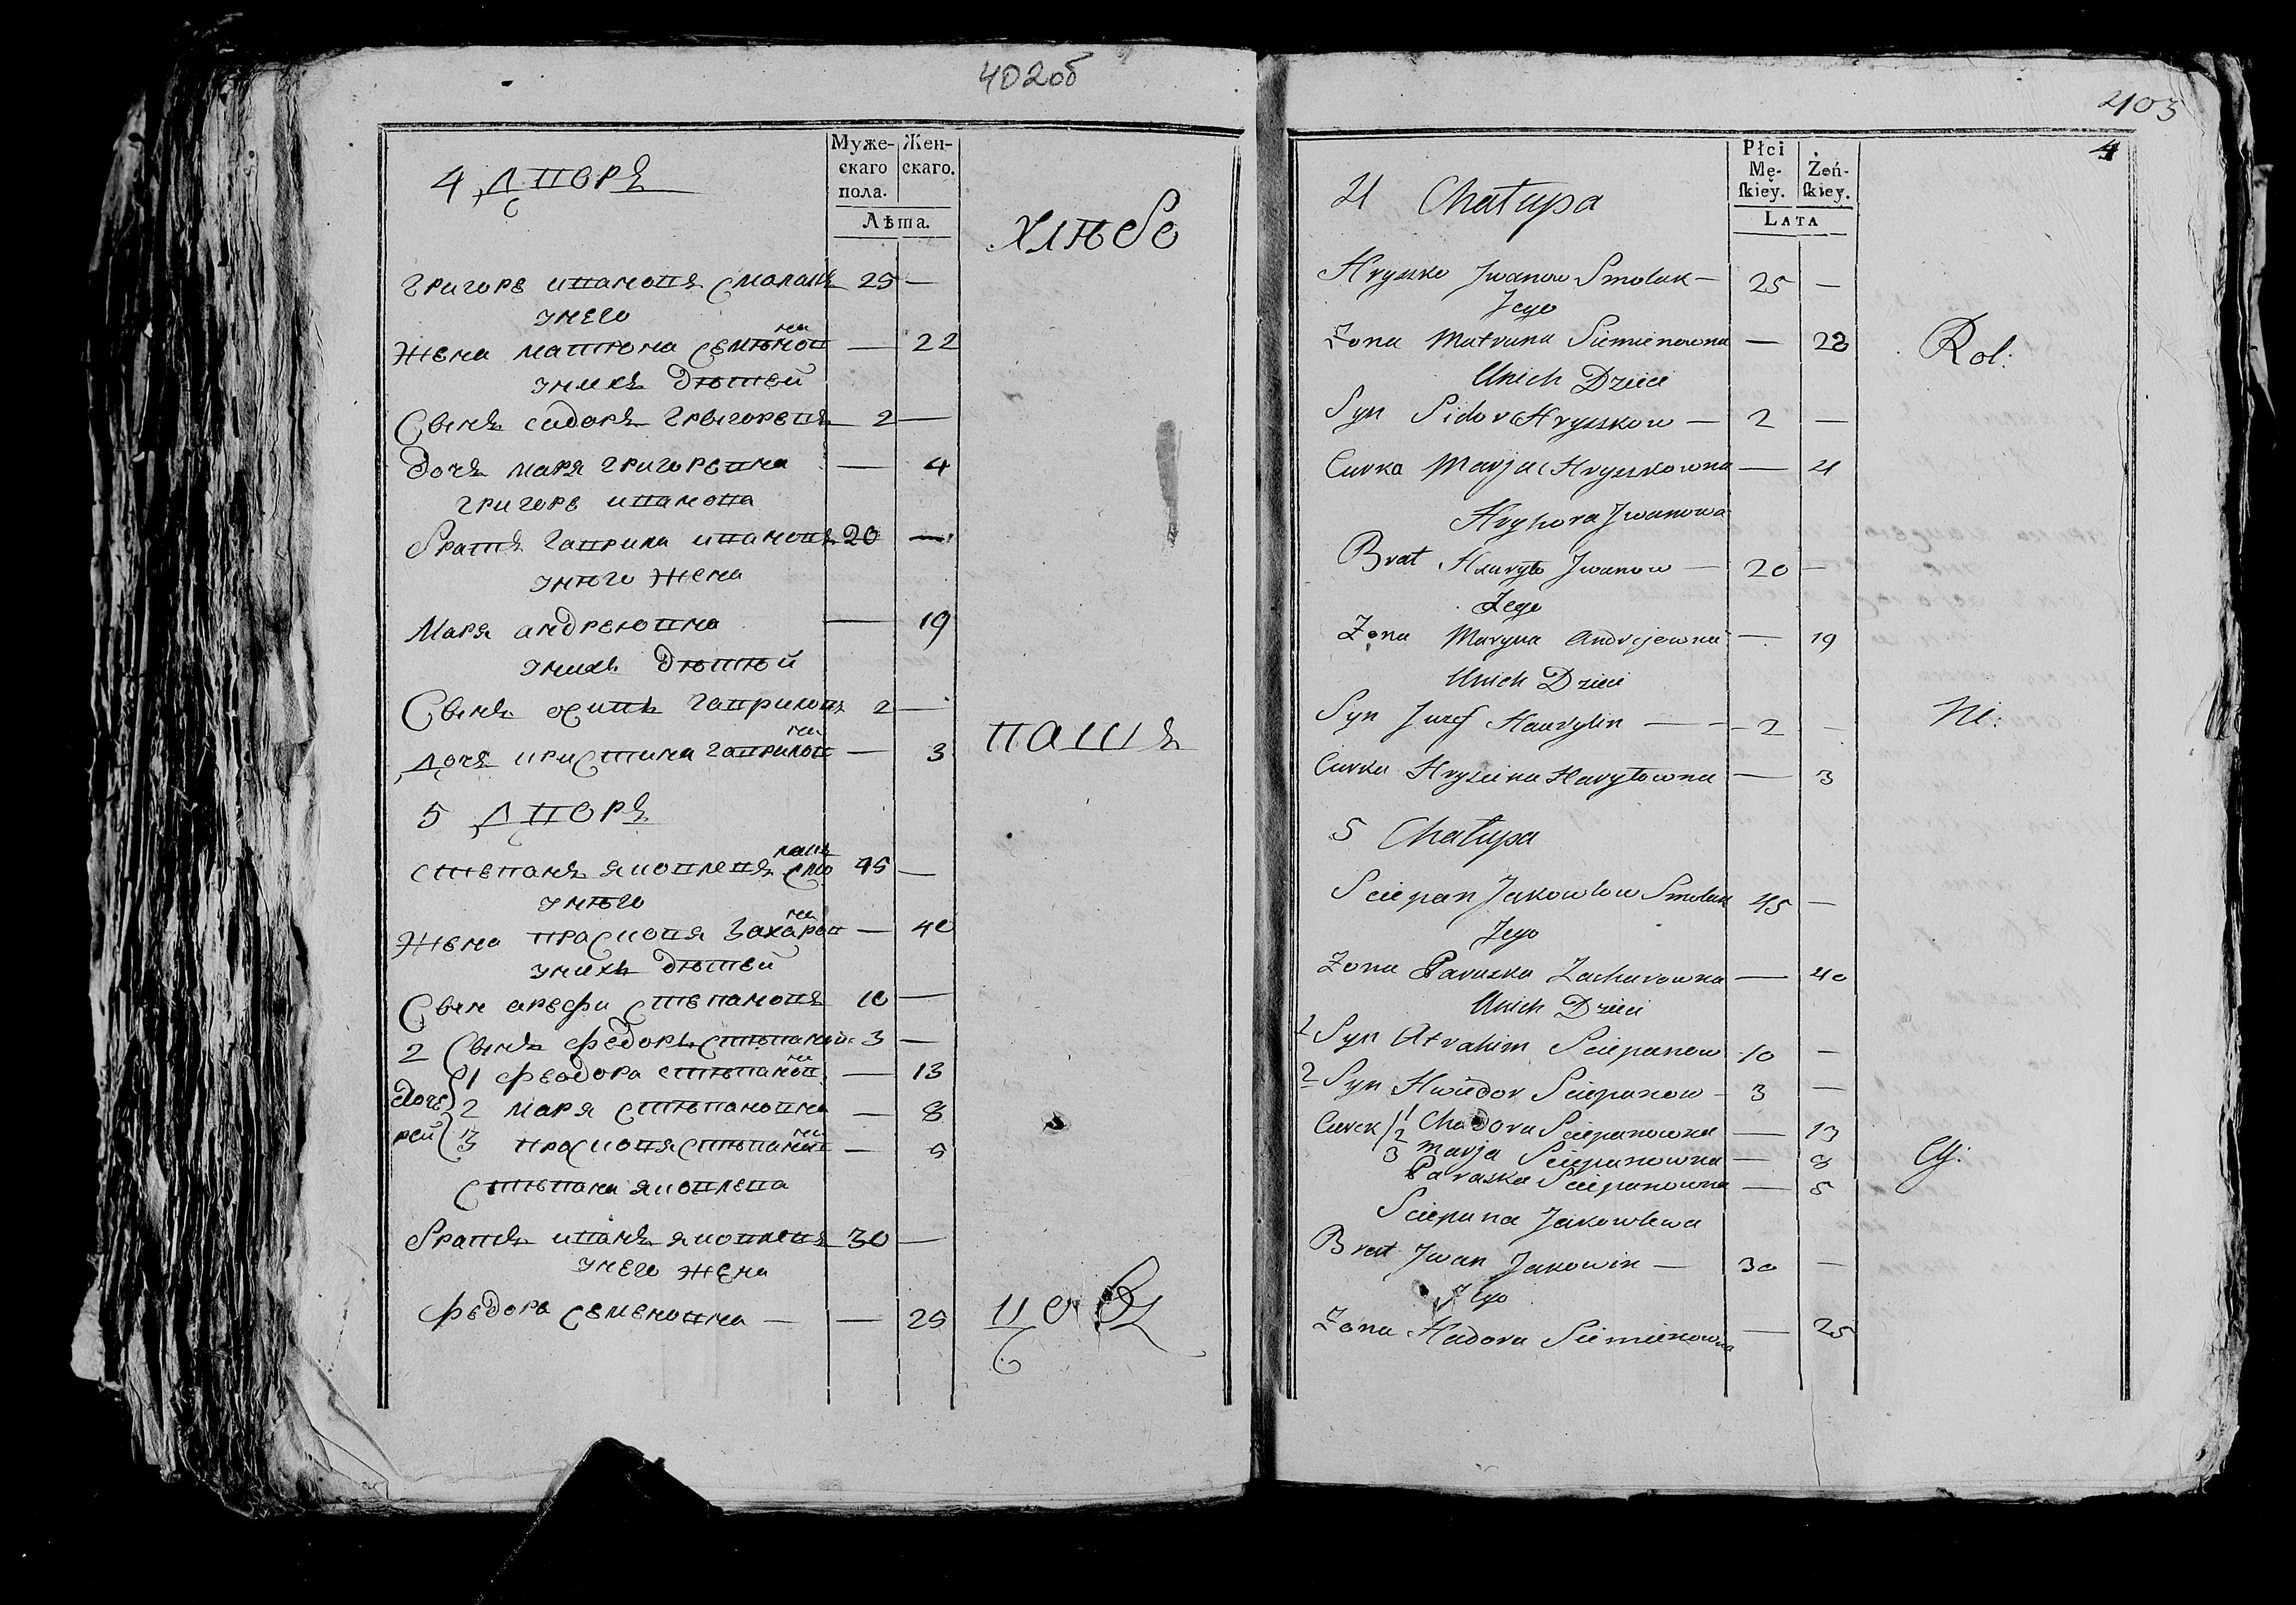 402об
4 дворъ
Муже-
скаго
пола.
Жен-
скаго.
Лѣта.
хлѣбо
григоре иванова смаликъ 25 —
унего
жена матрона семѣновна — 22
унихъ дѣтей
Сынъ сидоръ грыгоревъ 2 —
дочь маря григоревна — 4
григоре иванова
братъ гаврила ивановъ 20 —
унѣго жена
Маря андреювна — 19
унихъ дѣтѣй
Сынъ осипъ гавриловъ 2 —
дочь кристина гавриловна — 3
пашъ
5 дворъ
степанъ яковлевъ смолакъ 45 —
унѣго
жена прасковя Захаровна — 40
унихъ дѣтей
Сын арефи степановъ 10 —
2 Сынъ федоръ степановъ 3 —
дочерей
1 феодора степановна — 13
2 маря степановна — 8
3 прасковя степановна — 5
степана яковлева
братъ иванъ яковлевъ 30 —
унего жена
федора семеновна — — 25
403
4
4 Chałupa
Płci
Mę-
ſkiey.
Żeń-
ſkiey.
LATA
Hryszko Jwanow Smolak — 25 —
Jego
Zona Matruna Siemienowna — 22
Rol:
Unich Dzieci
Syn Sidor Hryszkow — 2 —
Curka Marja Hryszkowna — 4
Hryhora Jwanowa
Brat Hauryło Jwanow — 20 —
Jego
Zona Maryna Andrejewna — 19
Unich Dzieci
Syn Juzef Haurylin — — 2 —
Ni:
Curka Hryscina Haryłowna — 3
5 Chałupa
Sciepan Jakowlow Smolak 45 —
Jego
Zona Paraska Zacharowna — 40
Unich Dzieci
1 Syn Atrahim Sciepanow 10 —
2 Syn Hwiedor Sciepanow — 3 —
Curek 1 Chadora Sciepanowna — 13
2 Marja Sciepanowna — 8
3 Paraska Sciepanowna — 5
Sciepana Jakowlewa
Brat Jwan Jakowin — 30 —
Jego
Zona Hadora Siemienowna — 25